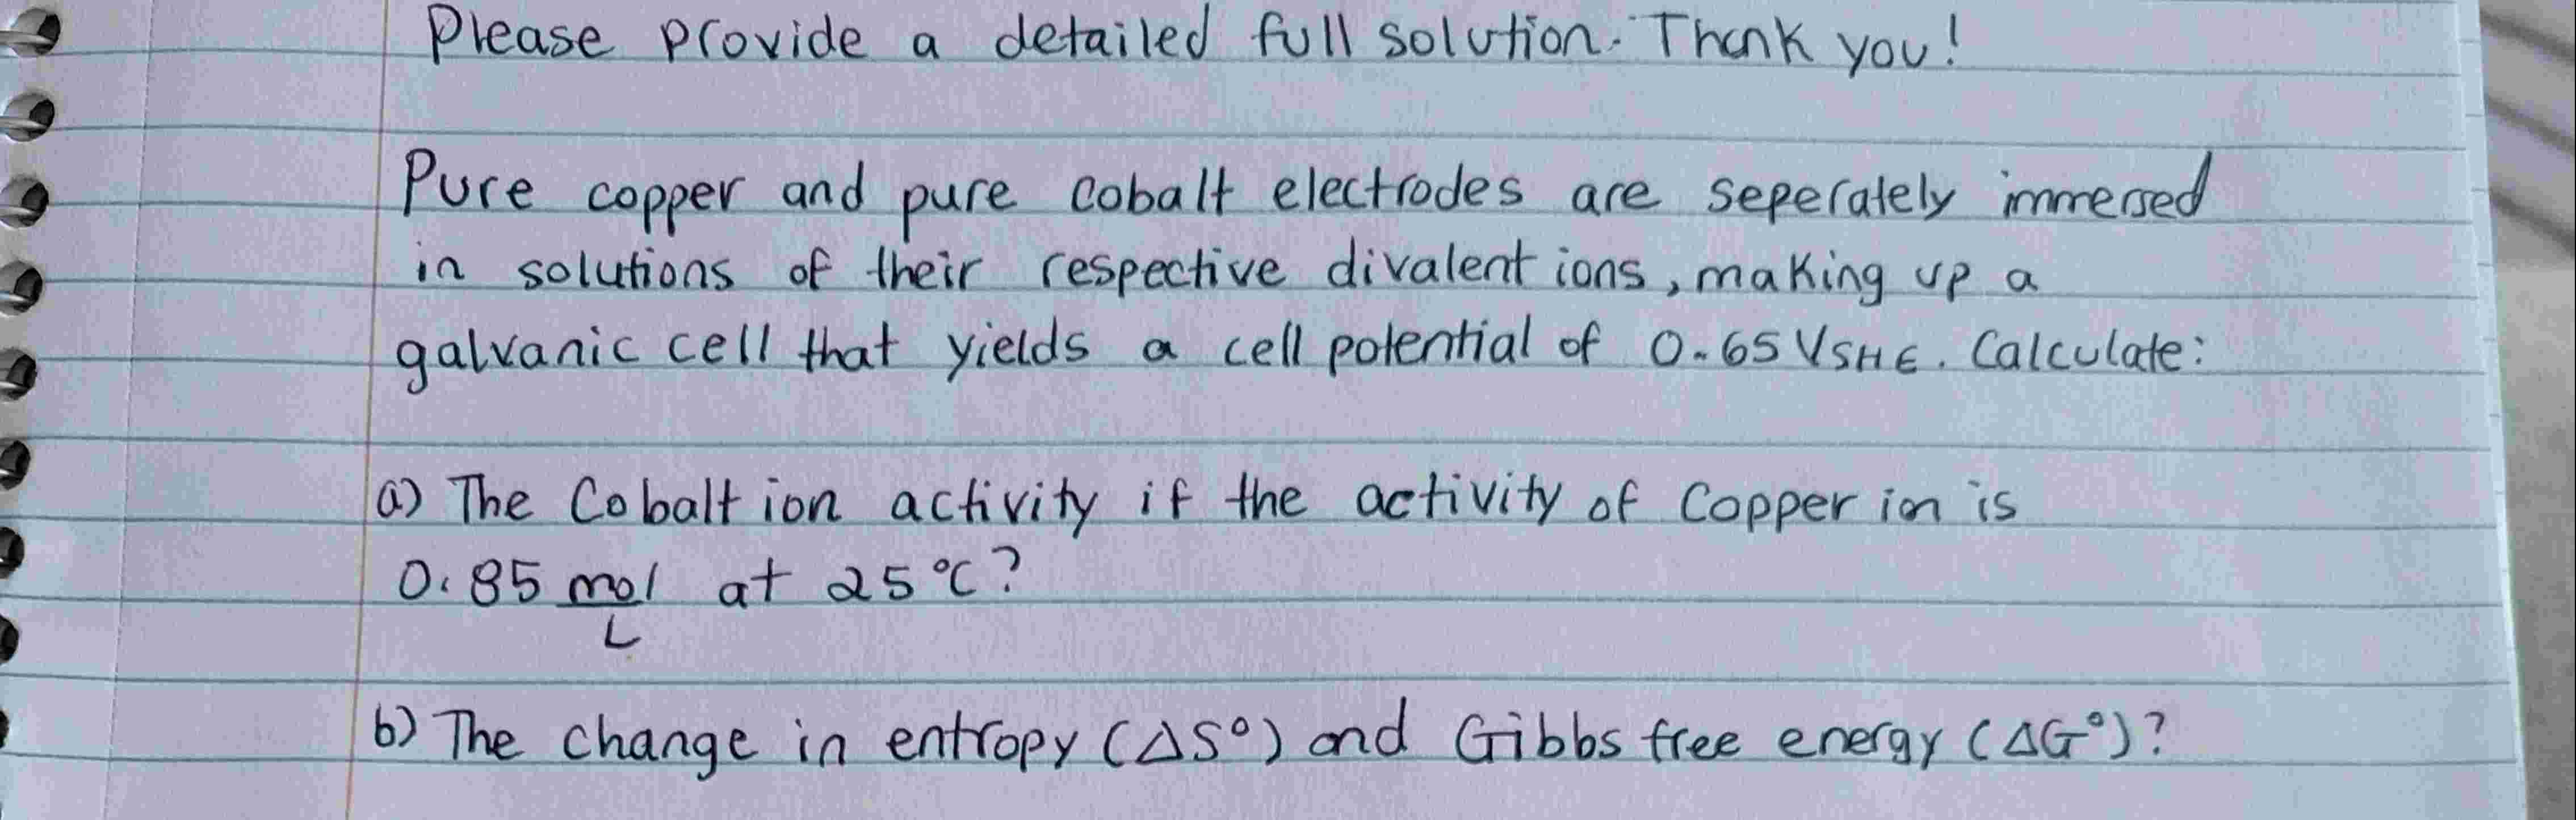 Please provide a detailed full solution. Thank you!
Pure copper and pure cobalt electrodes are seperately immersed
in solutions of their respective divalent ions, making up a
galvanic cell that yields a cell potential of 0.65 VSHE. Calculate:
a) The Cobalt ion activity if the activity of Copper ion is
0.85 mol/L at 25°C?
b) The change in entropy (ΔS°) and Gibbs free energy (ΔG°)?